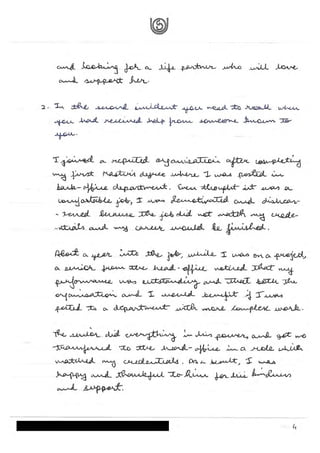 and looking for a life partner who will love
and support her.
2. In the second incident you need to recall when
you had received help from someone known to
you.
I joined a reputed organisation after completing
my first Master's degree where I was posted in
back-office department. Even thought it was a
comfortable job, I was demotivated and dishear-
-tened because the job did not match my crede-
-ntials and my career would be finished.
About a year into the job, while I was on a project,
a senior from the head-office noticed that my
performance was outstanding and that both the
organisation and I would benefit if I was
posted to a department with more complex work.
The senior did everything in his power, and got me
transferred to the head-office in a role which
matched my credentials. As a result, I was
happy and thankful to him for his kindness
and support.
4